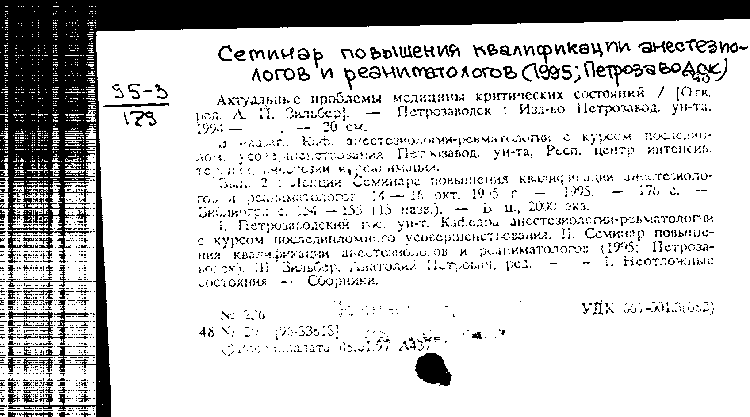 Семинар повышения квалификации анестезио-
логов и реаниматологов (1995; Петрозаводск)
95-3
179
Актуальные проблемы медицины критических состояний / [Отв.
ред. А. П. Зильбер]. — Петрозаводск : Изд-во Петрозавод. ун-та,
1994 — . — 20 см.
В надзаг.: Каф. анестезиологии-ревматологии с курсом последип-
лом. усовершенствования Петрозавод. ун-та, Респ. центр интенсив.
терапии, анестезии и реанимации.
Вып. 2 : Лекции Семинара повышения квалификации анестезиоло-
гов и реаниматологов, 14 — 18 окт. 1995 г. — 1995. — 176 с. —
Библиогр.: с. 154 — 155 (15 назв.). — Б. ц., 2000 экз.
I. Петрозаводский гос. ун-т. Кафедра анестезиологии-ревматологии
с курсом последипломного усовершенствования. II. Семинар повыше-
ния квалификации анестезиологов и реаниматологов (1995; Петроза-
водск). III. Зильбер, Анатолий Петрович, ред. — — 1. Неотложные
состояния — Сборники.
№ УДК
48 №
палата 03.01.97